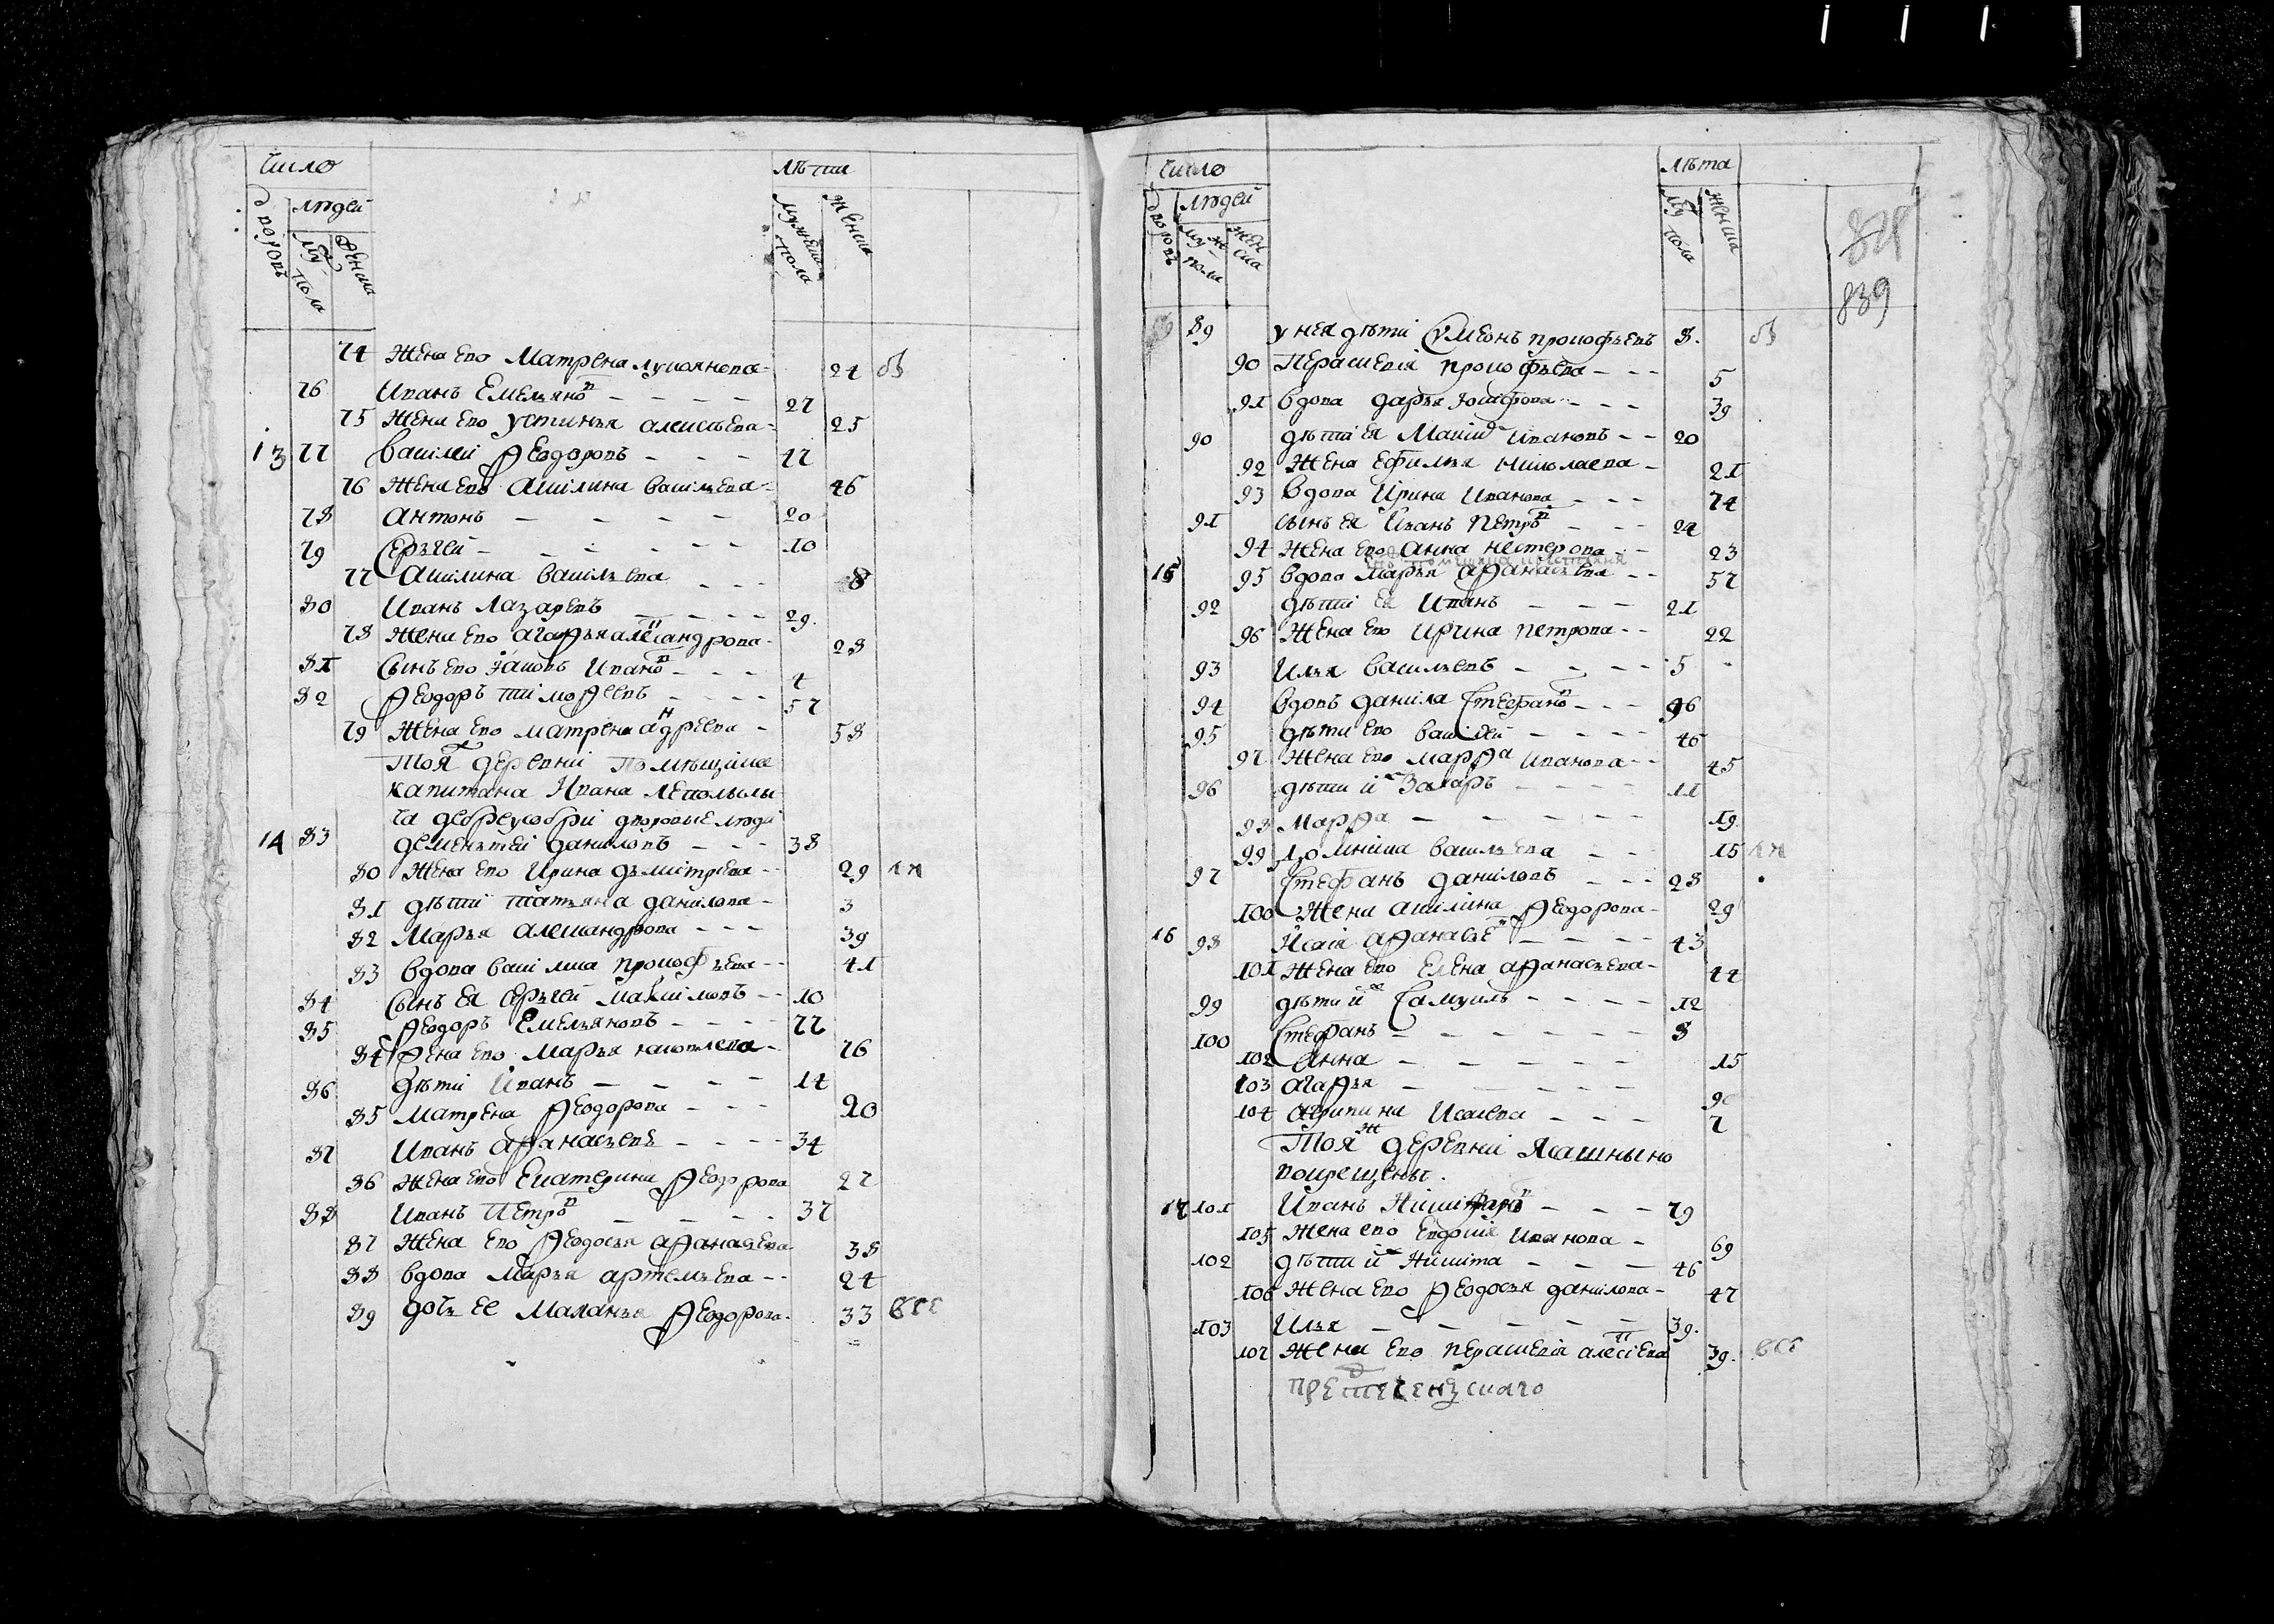 Число
Лѣта
дворовъ
людей
муж. пола
женска
мужеска пола
женска
74 Жена ево Матрена лукоянова - 24 бз
76 Иванъ Емельяновъ - - - - 27
75 Жена ево устинья алексѣева - 25
13 77 василеи Ѳеодоровъ - - - 47
76 Жена ево Акилина васильева - 46
78 антонъ - - - - 20
79 Сергеи - - - - - 10
77 Акилина васильева - - - 8
80 Иванъ Лазаревъ - - - - 29.
78 Жена ево агаѳья александрова - 28
81 Сынъ ево Iаковъ Ивановъ - - - 4
82 Ѳеодоръ тимоѳеевъ - - - - 57
79 Жена ево матрена андреева - 58
Тоя ж деревни Помѣщика
капитана Ивана
дворовые люди
14 83 дементеи даниловъ - - - 38
80 Жена ево Ирина дьмитрева - - 29
81 дѣти татьяна данилова - 3
82 Марья александрова - - - 39
83 вдова василиса прокофьева - - 41
84 Сынъ ея Сергеи Максимовъ - - 10
85 Ѳеодоръ Емельяновъ - - - - 77
84 Жена ево Марья яковлева - 76
86 дѣти Иванъ - - - - 14
85 Матрена Ѳеодорова - - - 20
87 Иванъ аѳанасьевъ - - - - 34
86 Жена ево Екатерина Ѳеодорова 27
88 Иванъ Петровъ - - - - 37
87 Жена ево Ѳеодосья аѳанасьева 38
88 вдова Марья артемьева - - 24
89 дочь ее Маланья Ѳеодорова - 33
Число
Лѣта
дворовъ
людей
муж пола
женска
муж пола
женска
839
89 у нея дѣти Сумеонъ прокофьевъ 8. бз
90 Перасковiя прокофьева - - - 5
91 вдова дарья Iосифова - - - 39
90 дѣти ея Максимъ Ивановъ - - 20
92 Жена Ефимья николаева - 21
93 вдова Ирина Иванова - - - 74
91 сынъ ея Иванъ Петровъ - - - 24
94 Жена ево анна нестерова - - 23
помещика крестьяня
15 95 вдова Марья аѳанасьева - - 57
92 дѣти ея Иванъ - - - 21
96 Жена ево Ирина петрова - - 22
93 Илья васильевъ - - - - 5
94 вдовъ данила Стефановъ - - - 96
95 дѣти ево василеи - - - - 46
97 Жена ево марѳа Иванова - - 45
96 дѣти их Захаръ - - - - 11
98 Марѳа - - - - - - 19.
99 Домникия васильева - - 15
97 Стефанъ даниловъ - - - 28
100 Жена акилина Ѳеодорова - 29
16 98 Исаiя аѳанасьевъ - - - - 43
101 Жена ево Елена аѳанасьева - 44
99 дѣти их Самуилъ - - - - 12
100 Стефанъ - - - - - - 8
102 Анна - - - - - - 15
103 агаѳья - - - - - -
104 агрипина Исаиева - - - 7
Тоя ж деревни Ясашны но
вокрещены.
17 101 Иванъ - - - 79
105 Жена ево Евдокiя Иванова - 69
102 дѣти их Никита - - - 46
106 Жена ево Ѳеодосья данилова - 47
103 Илья - - - - - 39.
107 Жена ево перасковiя алексiева 39.
предтеченскаго